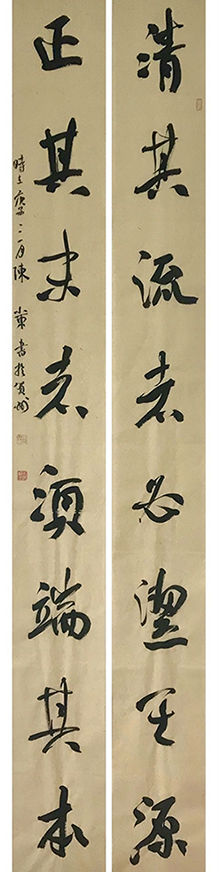 清其流者必潔其源
正其末者須端其本
時在庚子二月陳
書於貴州